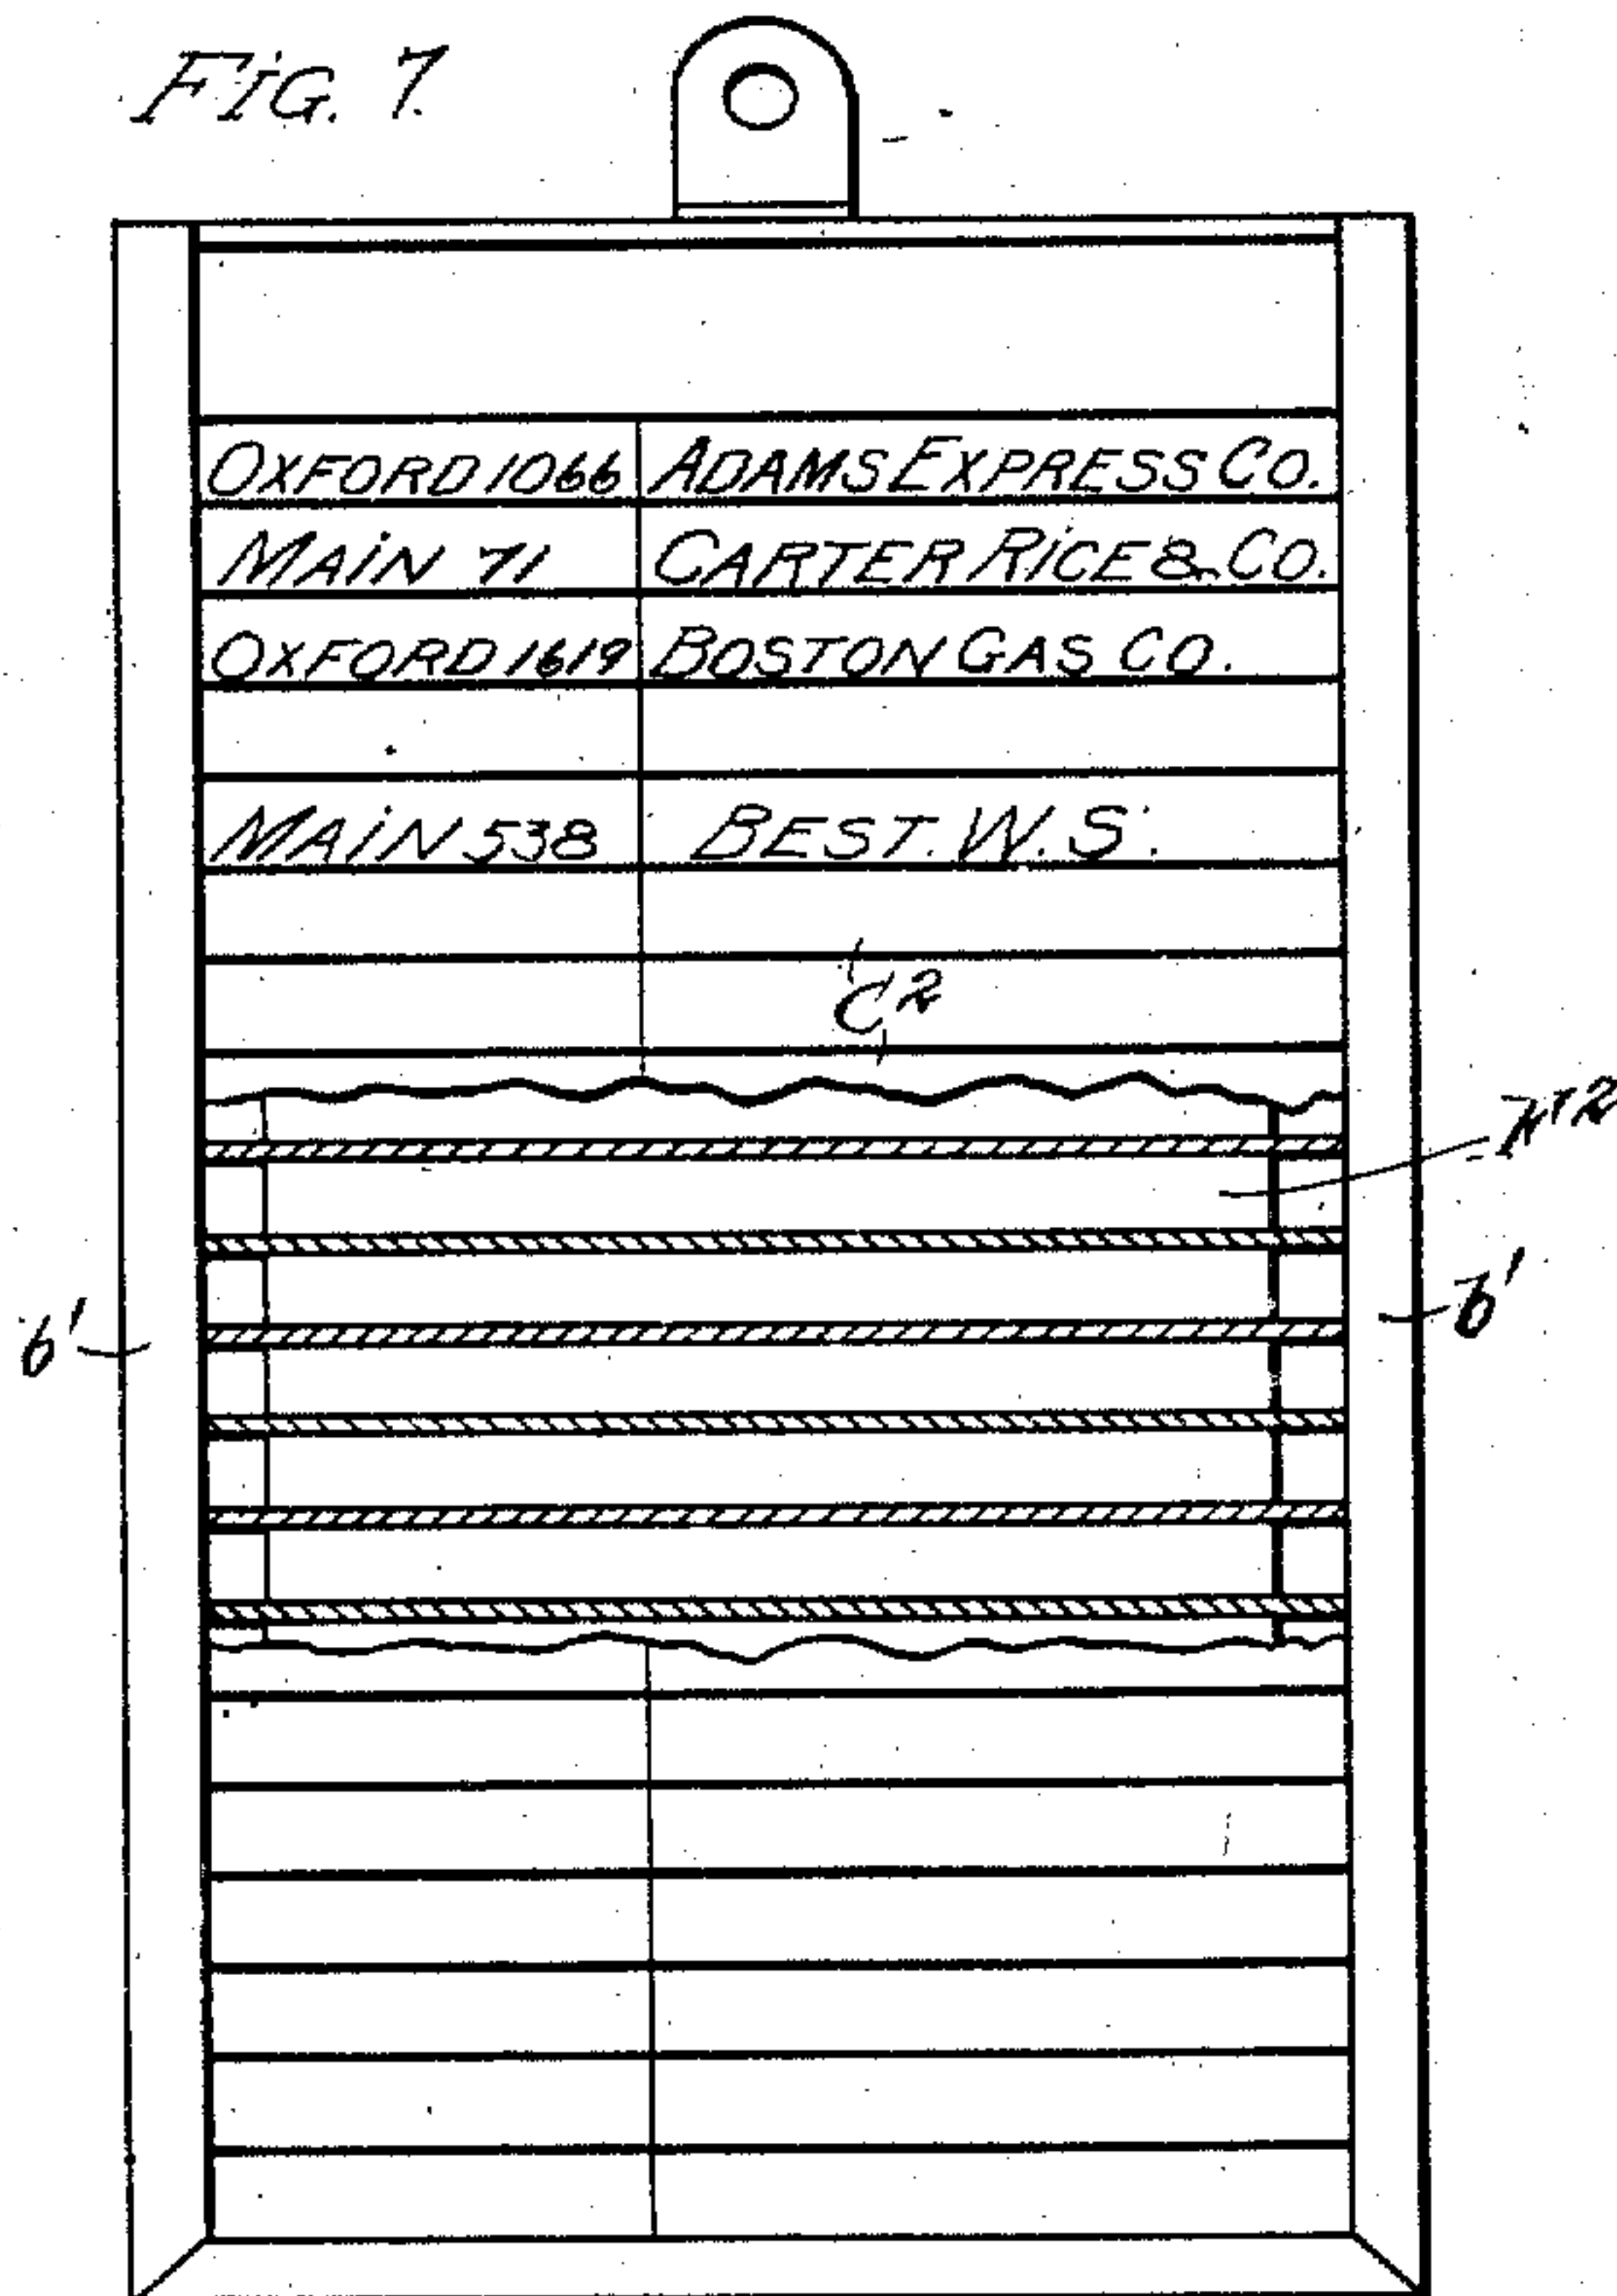 FIG. 7.
OXFORD 1066 ADAMS EXPRESS CO.
MAIN 71 CARTER RICE & CO.
OXFORD 1619 BOSTON GAS CO.
MAIN 538 BEST. W. S.
C²
b' b'